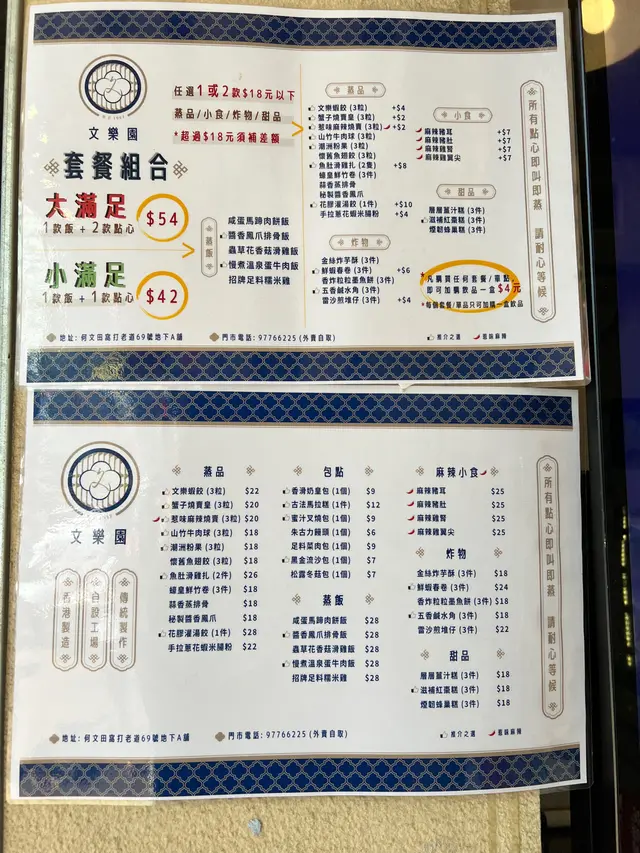 文樂園
套餐組合
大滿足
1款飯 + 2款點心
$54
小滿足
1款飯 + 1款點心
$42
任選1或2款$18元以下
蒸品/小食/炸物/甜品
*超過$18元須補差額
蒸飯
咸蛋馬蹄肉餅飯
醬香鳳爪排骨飯
蟲草花香菇滑雞飯
慢煮溫泉蛋牛肉飯
招牌足料糯米雞
蒸品
文樂蝦餃 (3粒) +$4
蟹子燒賣皇 (3粒) +$2
惹味麻辣燒賣 (3粒) +$2
山竹牛肉球 (3粒)
潮洲粉果 (3粒)
懷舊魚翅餃 (3粒)
魚肚滑雞扎 (2隻) +$8
蠔皇鮮竹卷 (3件)
蒜香蒸排骨
秘製醬鳳爪
花膠灌湯餃 (1件) +$10
手拉蔥花蝦米腸粉 +$4
炸物
金絲炸芋酥 (3件)
鮮蝦春卷 (3件) +$6
香炸粒粒墨魚餅 (3件)
五香鹹水角 (3件)
雷沙煎堆仔 (3件) +$4
小食
麻辣豬耳 +$7
麻辣豬肚 +$7
麻辣雞腎 +$7
麻辣雞翼尖 +$7
甜品
層層薑汁糕 (3件)
滋補紅棗糕 (3件)
煙韌蜂巢糕 (3件)
*凡購買任何套餐/單點,
即可加購飲品一盒$4元
*每個套餐/單品只可加購一盒飲品
所有點心即叫即蒸 請耐心等候
地址: 何文田窩打老道69號地下A舖
門市電話: 97766225 (外賣自取)
推介之選
惹味麻辣
文樂園
香港製造
自設工場
傳統製作
蒸品
文樂蝦餃 (3粒) $22
蟹子燒賣皇 (3粒) $20
惹味麻辣燒賣 (3粒) $20
山竹牛肉球 (3粒) $18
潮洲粉果 (3粒) $18
懷舊魚翅餃 (3粒) $18
魚肚滑雞扎 (2件) $26
蠔皇鮮竹卷 (3件) $18
蒜香蒸排骨 $18
秘製醬鳳爪 $18
花膠灌湯餃 (1件) $28
手拉蔥花蝦米腸粉 $22
包點
香滑奶皇包 (1個) $9
古法馬拉糕 (1件) $12
蜜汁叉燒包 (1個) $9
朱古力饅頭 (1個) $6
足料菜肉包 (1個) $9
黑金流沙包 (1個) $7
松露冬菇包 (1個) $7
蒸飯
咸蛋馬蹄肉餅飯 $28
醬香鳳爪排骨飯 $28
蟲草花香菇滑雞飯 $28
慢煮溫泉蛋牛肉飯 $28
招牌足料糯米雞 $28
麻辣小食
麻辣豬耳 $25
麻辣豬肚 $25
麻辣雞腎 $25
麻辣雞翼尖 $25
炸物
金絲炸芋酥 (3件) $18
鮮蝦春卷 (3件) $24
香炸粒粒墨魚餅 (3件) $18
五香鹹水角 (3件) $18
雷沙煎堆仔 (3件) $22
甜品
層層薑汁糕 (3件) $18
滋補紅棗糕 (3件) $18
煙韌蜂巢糕 (3件) $18
所有點心即叫即蒸 請耐心等候
地址: 何文田窩打老道69號地下A舖
門市電話: 97766225 (外賣自取)
推介之選
惹味麻辣